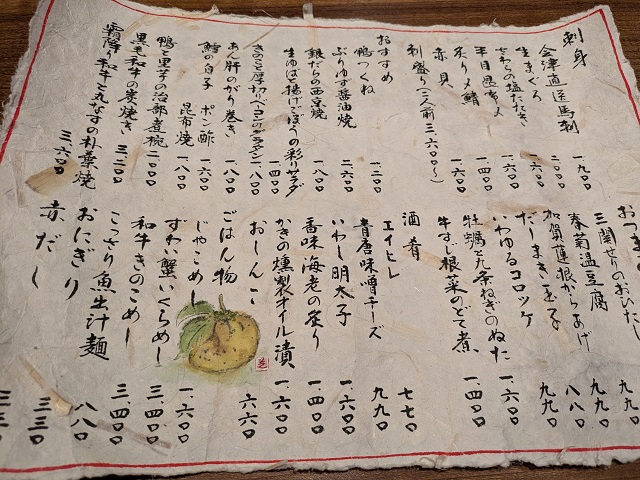 刺身
会津直送馬刺 一、九〇〇
生まぐろ 二、〇〇〇
さわらの塩たたき 一、六〇〇
平目昆布〆 一、六〇〇
炙り〆鯖 一、四〇〇
赤貝 一、六〇〇
刺盛り(二人前 三、六〇〇〜)
おすすめ
鴨つくね 一、二〇〇
ぶりゆず醤油焼 二、六〇〇
銀だらの西京焼 一、八〇〇
生ゆば揚げごぼうの彩りサラダ 一、四〇〇
きのこと厚切りベーコンのグラタン 一、八〇〇
あん肝のがり巻き 一、八〇〇
鱈の白子 ポン酢
昆布焼 一、八〇〇
鴨と里芋の治部煮椀 二、〇〇〇
黒毛和牛の炭焼き 三、二〇〇
霜降り和牛と丸なすの朴葉焼 三、六〇〇
おつま
三関せりのおひたし
春菊温豆腐 九九〇
加賀蓮根からあげ 九九〇
だしまき玉子 八八〇
いわゆるコロッケ 九九〇
牡蠣と九条ねぎのぬた 一、六〇〇
牛すじ根菜のどて煮 一、四〇〇
酒肴
エイヒレ 七七〇
青唐味噌チーズ 九九〇
いわし明太子 一、六〇〇
香味海老の炙り 一、四〇〇
かきの燻製オイル漬 一、六〇〇
おしんこ 六六〇
ごはん物
じゃこめし 一、六〇〇
ずわい蟹いくらめし 三、四〇〇
和牛きのこめし 三、四〇〇
こってり魚出汁麺 八八〇
おにぎり 三三〇
赤だし 三三〇